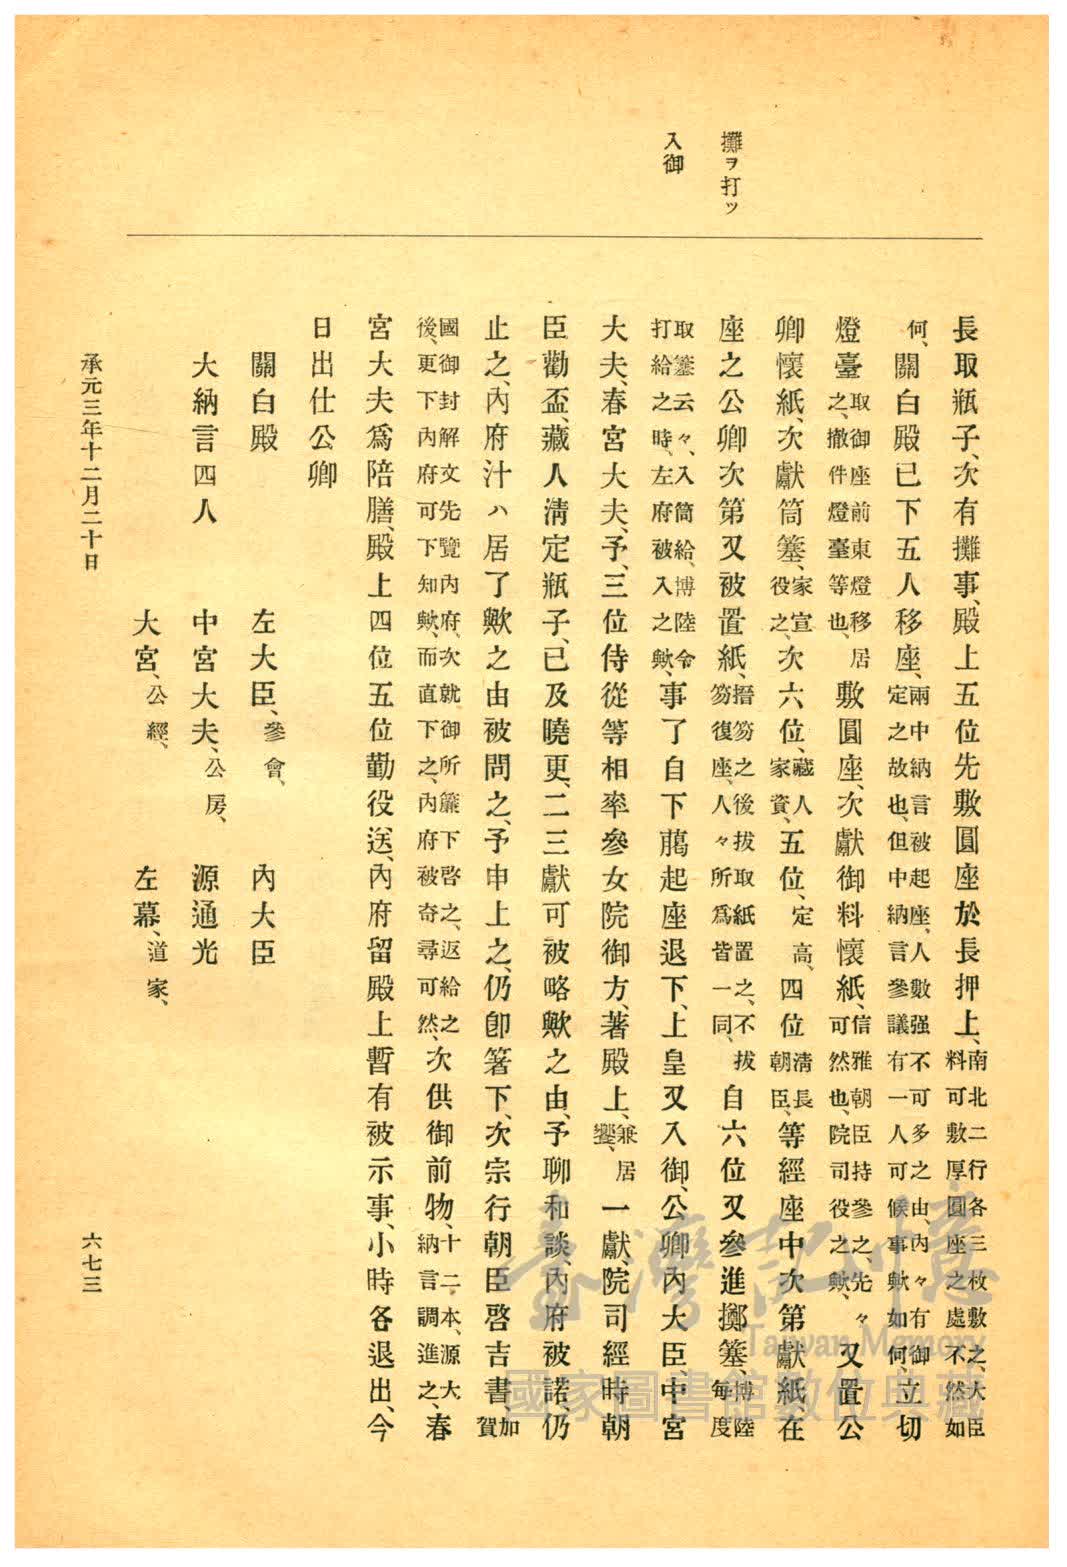 攤ヲ打ッ
入御
長取瓶子、次有攤事、殿上五位先敷圓座於長押上、南北二行各三枚敷之、大臣料可敷厚圓座之處不然如
何、關白殿已下五人移座、兩中納言被起座、人數强不可多之由、內々有御定之故也、但中納言參議有一人可候事歟如何、立切
燈臺取御座前東燈移居之、撤件燈臺等也、敷圓座、次獻御料懷紙、信雅朝臣持參之、先々可然也、院司役之歟、又置公
卿懷紙、次獻筒簺、家宣役之、次六位、藏人家資、五位、定高、四位淸長朝臣、等經座中次第獻紙、在
座之公卿次第又被置紙、搢笏之後拔取紙置之、不拔笏復座、人々所爲皆一同、自六位又參進擲簺、博陸每度
取簺云々、入筒給、博陸令打給之時、左府被入之歟、事了自下﨟起座退下、上皇又入御、公卿內大臣、中宮
大夫、春宮大夫、予、三位侍從等相率參女院御方、著殿上、兼居饗、一獻、院司經時朝
臣勸盃、藏人淸定瓶子、已及曉更、二三獻可被略歟之由、予聊和談、內府被諾、仍
止之、內府汁ハ居了歟之由被問之、予申上之、仍卽箸下、次宗行朝臣啓吉書、加賀
國御封解文先覽內府、次就御所簾下啓之、返給之後、更下內府可下知歟、而直下之、內府被奇尋可然、次供御前物、十二本、源大納言調進之、春
宮大夫爲陪膳、殿上四位五位勤役送、內府留殿上暫有被示事、小時各退出、今
日出仕公卿
關白殿　左大臣、參會、　內大臣
大納言四人　中宮大夫、公房、　源通光
大宮、公經、　左幕、道家、
承元三年十二月二十日
六七三
臺灣記憶
Taiwan Memory
國家圖書館數位典藏